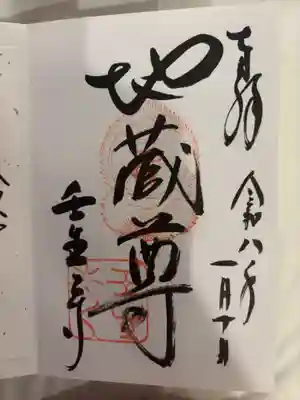 奉拝 令和八年一月十日
地蔵尊
壬生寺